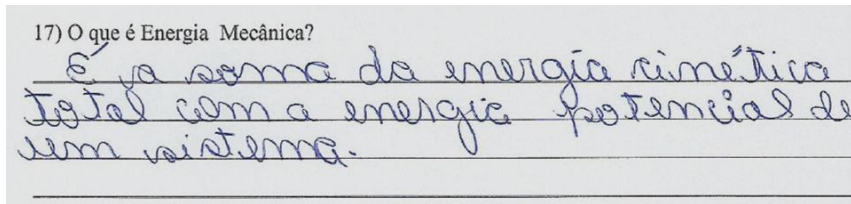 17) O que é Energia Mecânica?
É a soma da energia cinética
total com a energia potencial de
um sistema.